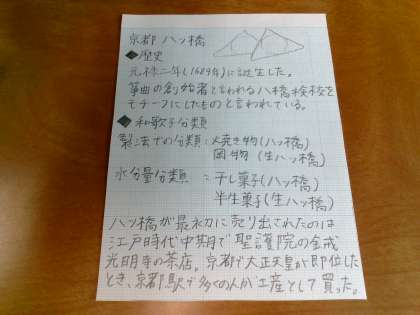 京都 八ッ橋
◆歴史
元禄二年(1689年)に誕生した。
箏曲の創始者と言われる八橋検校を
モチーフにしたものと言われている。
◆和歌子分類
製法での分類:焼き物(八ッ橋)
岡物(生八ッ橋)
水分量分類:干し菓子(八ッ橋)
半生菓子(生八ッ橋)
八ッ橋が最初に売り出されたのは
江戸時代中期で聖護院の金戒
光明寺の茶店。京都で大正天皇が即位した
とき、京都駅で多くの人が土産として買った。